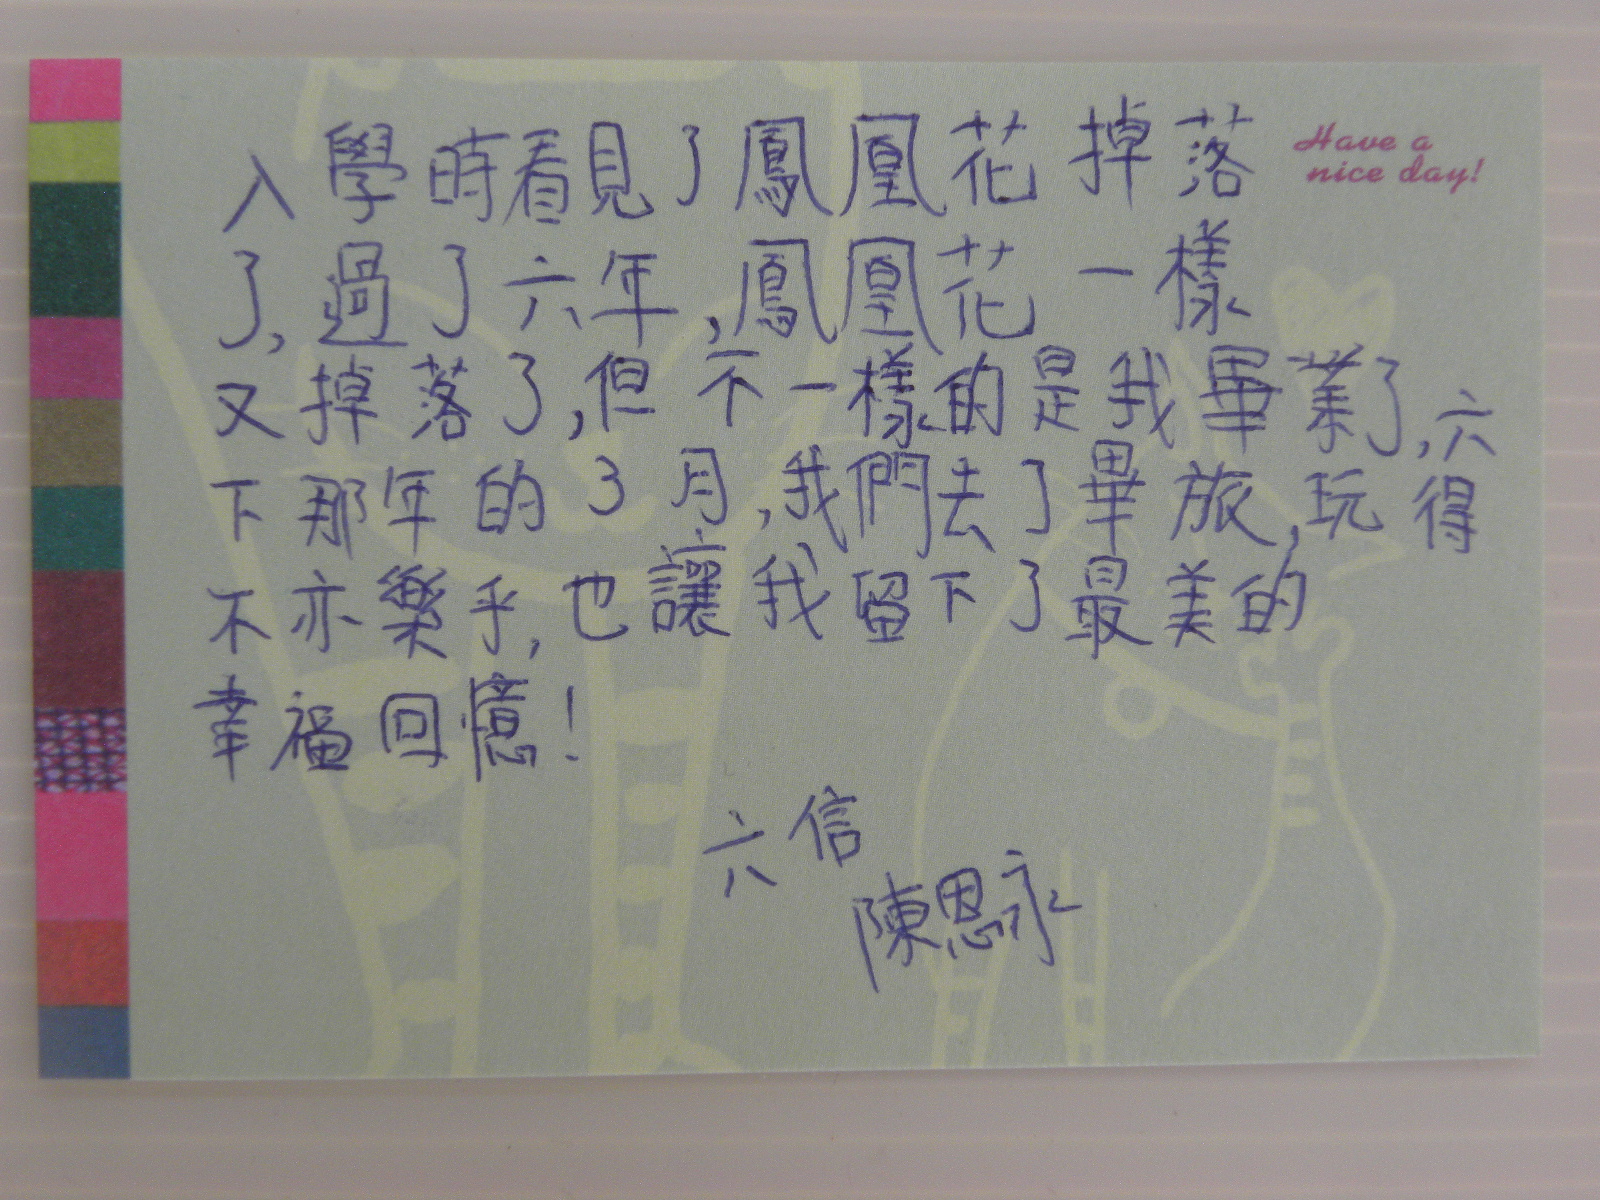 入學時看見了鳳凰花掉落
Have a
nice day!
了,過了六年,鳳凰花一樣
又掉落了,但不一樣的是我畢業了,六
下那年的3月,我們去了畢旅,玩得
不亦樂乎,也讓我留下了最美的
幸福回憶!
六信
陳恩永